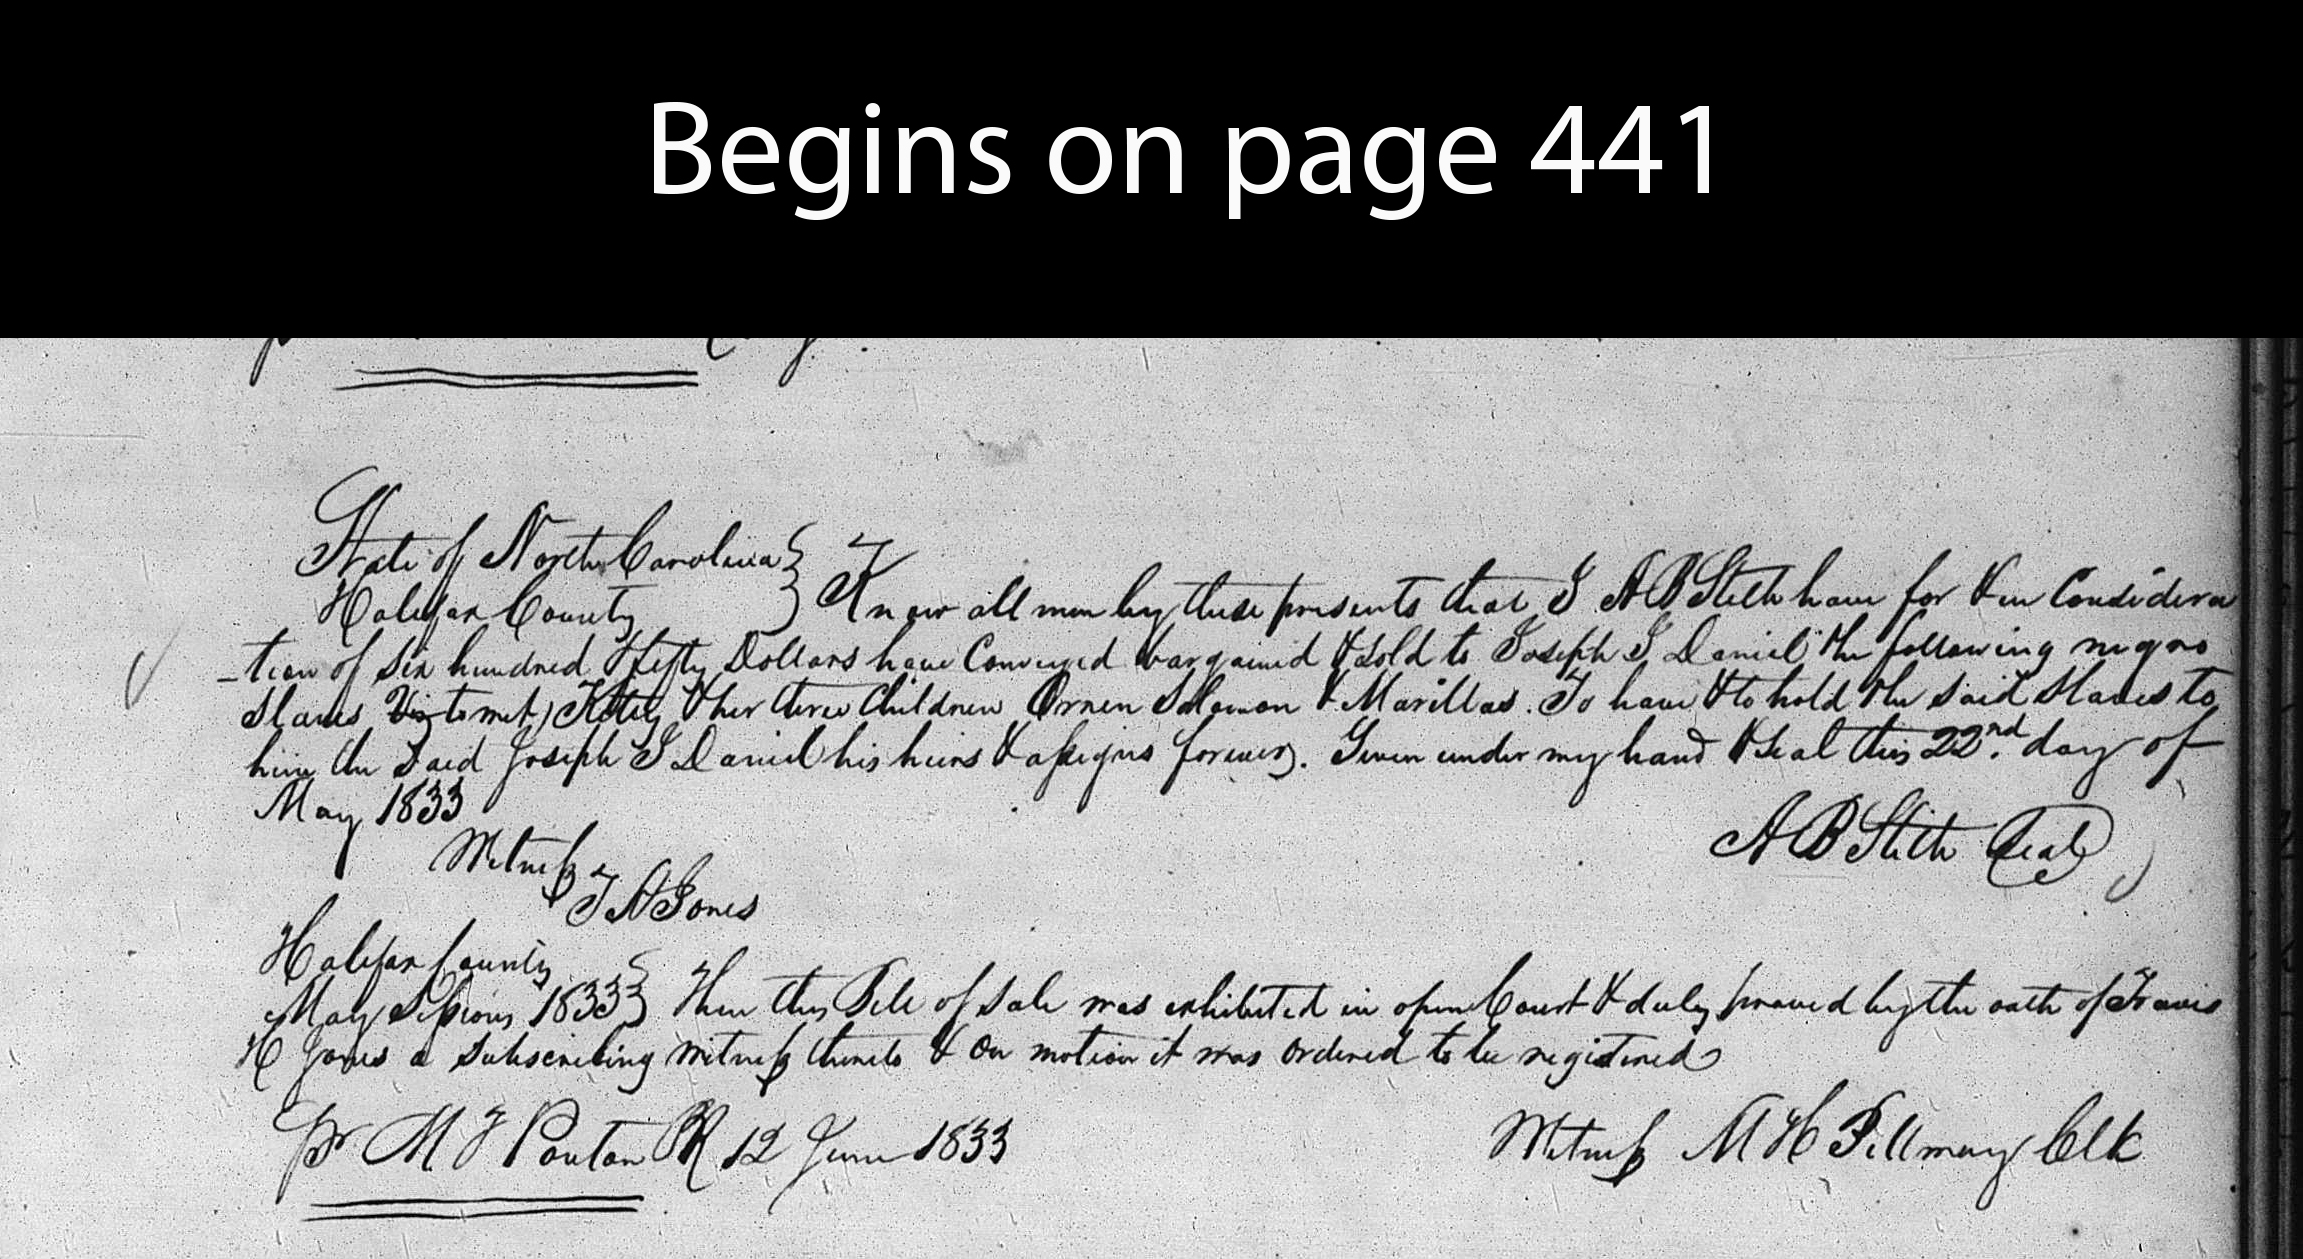 Begins on page 441
State of North Carolina
Halifax County } Know all men by these presents that I A B Stith have for & in Considera
-tion of Six hundred & fifty Dollars have Conveyed bargained & Sold to Joseph J Daniel the following negro
Slaves to wit, & her three Children Solomon & Marillas. To have & to hold the said Slaves to
him the Said Joseph J Daniel his heirs & assigns forever. Given under my hand & Seal this 22nd. day of
May 1833
A B Stith Seal
Witness
T H Jones
Halifax County
May Sessions 1833 } Then this Bill of Sale was exhibited in open Court & duly proved by the oath of Travis
H Jones a Subscribing witness thereto & On motion it was Ordered to be registered
pr M J Ponton PR 12 June 1833
Witness M H Clk